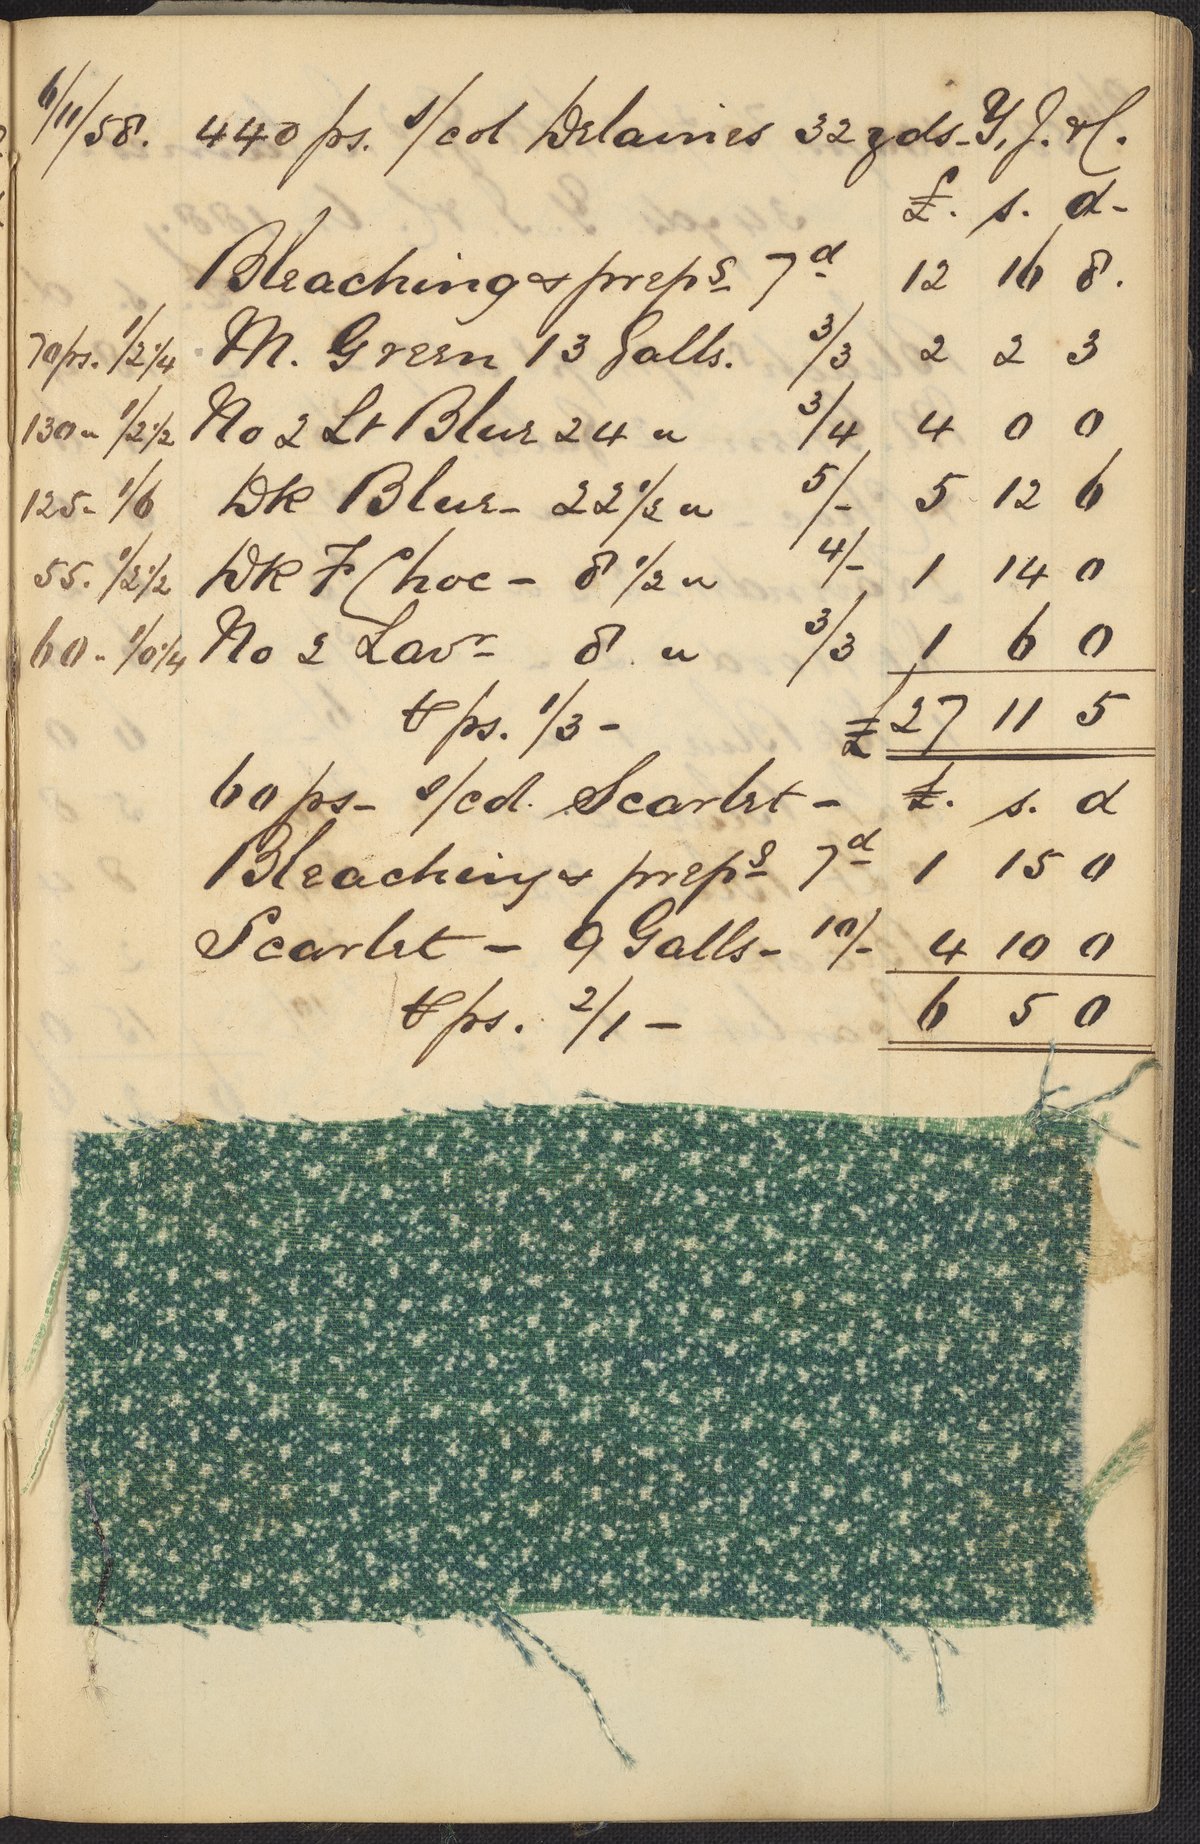 6/11/58. 440 ps. 1/col Delaines 32 yds - Y. J. & C.
£. s. d -
Bleaching & prepg 7d 12 16 8.
70ps. 1/2 1/4 M. Green 13 Galls. 3/3 2 2 3
130 " 1/2 1/2 No 2 Lt Blue 24 " 3/4 4 0 0
125 - 1/6 Dk Blue - 22 1/2 " 5/- 5 12 6
55. 1/2 1/2 Dk F Choc - 8 1/2 " 4/- 1 14 0
60 - 1/0 1/4 No 2 Lavr - 8 " 3/3 1 6 0
℔ ps. 1/3 - £ 27 11 5
60 ps - 1/cd. Scarlet - £. s. d
Bleaching & prepg 7d 1 15 0
Scarlet - 9 Galls - 10/- 4 10 0
ps. 2/1 - 6 5 0